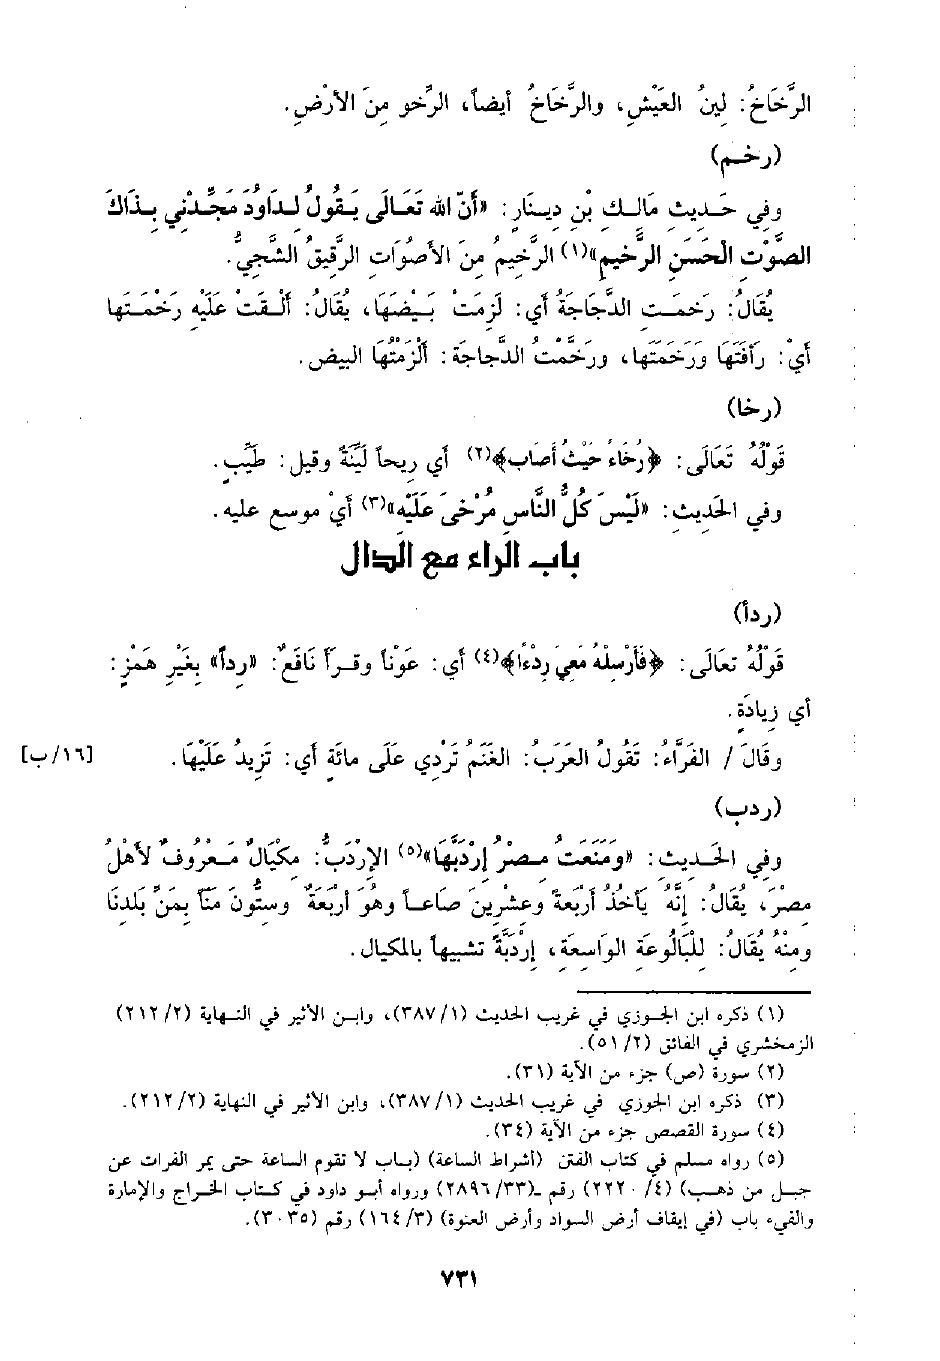 الرَّخَاخُ: لِينُ العَيْشِ، والرَّخَاخُ أيضاً، الرِّخو مِنَ الأرْضِ.
(رخم)
وفي حَديثِ مَالك بْنِ دِينَارٍ: «أَنّ الله تَعَالَى يَقُولُ لدَاوُدَ مَجِّدْني بذَاكَ
الصَّوْتِ الْحَسَنِ الرَّخيمِ»(١) الرَّخيمُ مِنَ الأصْوَاتِ الرَّقيقُ الشَّجيُّ.
يُقَالُ: رَخمَت الدَّجاجَةُ أي: لَزمَتْ بَيْضَهَا، يُقَالُ: أَلْقَتْ عَلَيْه رَخْمَتها
أيْ: رَأفَتَهَا وَرَحَمَتَها، ورخَّمْتُ الدَّجاجَة: ألْزَمْتُهَا البيض.
(رخا)
قَوْلُهُ تَعَالَى: ﴿رُخَاءً حَيْثُ أَصَاب﴾(٢) أي ريحاً لَيِّنَةً وقيل: طَيِّبٍ.
وفي الحَديث: «لَيْسَ كُلُّ النَّاس مُرْخىً عَلَيْه»(٣) أيْ موسع عليه.
باب الراء مع الدال
(ردأ)
قَوْلُهُ تعَالَى: ﴿فَأَرْسِلْهُ مَعِيَ رِدْءًا﴾(٤) أي: عَوْناً وقرأ نَافعٌ: «رداً» بِغَيْرِ هَمْزٍ:
أي زيادَةٍ.
وقَالَ / الفَرَّاءُ: تَقُولُ العَرَبُ: الغَنَمُ تَرْدِي عَلَى مائَةٍ أي: تَزيدُ عَلَيْهَا. [١٦/ب]
(ردب)
وفي الحَديث: «وَمَنَعَتْ مصْرُ إرْدَبَّهَا»(٥) الإرْدَبُّ: مكيَالٌ مَعْرُوفٌ لأهْلِ
مصْرَ، يُقَالُ: إنَّهُ يَأخُذُ أرْبَعَةً وعشْرينَ صَاعاً وهُوَ أرْبَعَةٌ وستُّونَ مَنّاً بمَنِّ بَلدنَا
ومنْهُ يُقَالُ: للْبَالُوعَةِ الوَاسعَةِ، إرْدَبَّةً تشبيهاً بالمكيال.
(١) ذكره ابن الجوزي في غريب الحديث (٣٨٧/١)، وابن الأثير في النهاية (٢١٢/٢)
الزمخشري في الفائق (٥١/٢).
(٢) سورة (ص) جزء من الآية (٣١).
(٣) ذكره ابن الجوزي في غريب الحديث (٣٨٧/١)، وابن الأثير في النهاية (٢١٢/٢).
(٤) سورة القصص جزء من الآية (٣٤).
(٥) رواه مسلم في كتاب الفتن (أشراط الساعة) (باب لا تقوم الساعة حتى يمر الفرات عن
جبل من ذهب) (٢٢٢٠/٤) رقم ـ(٢٨٩٦/٣٣) ورواه أبو داود في كتاب الخراج والإمارة
والفيء باب (في إيقاف أرض السواد وأرض العنوة) (١٦٤/٣) رقم (٣٠٣٥).
٧٣١